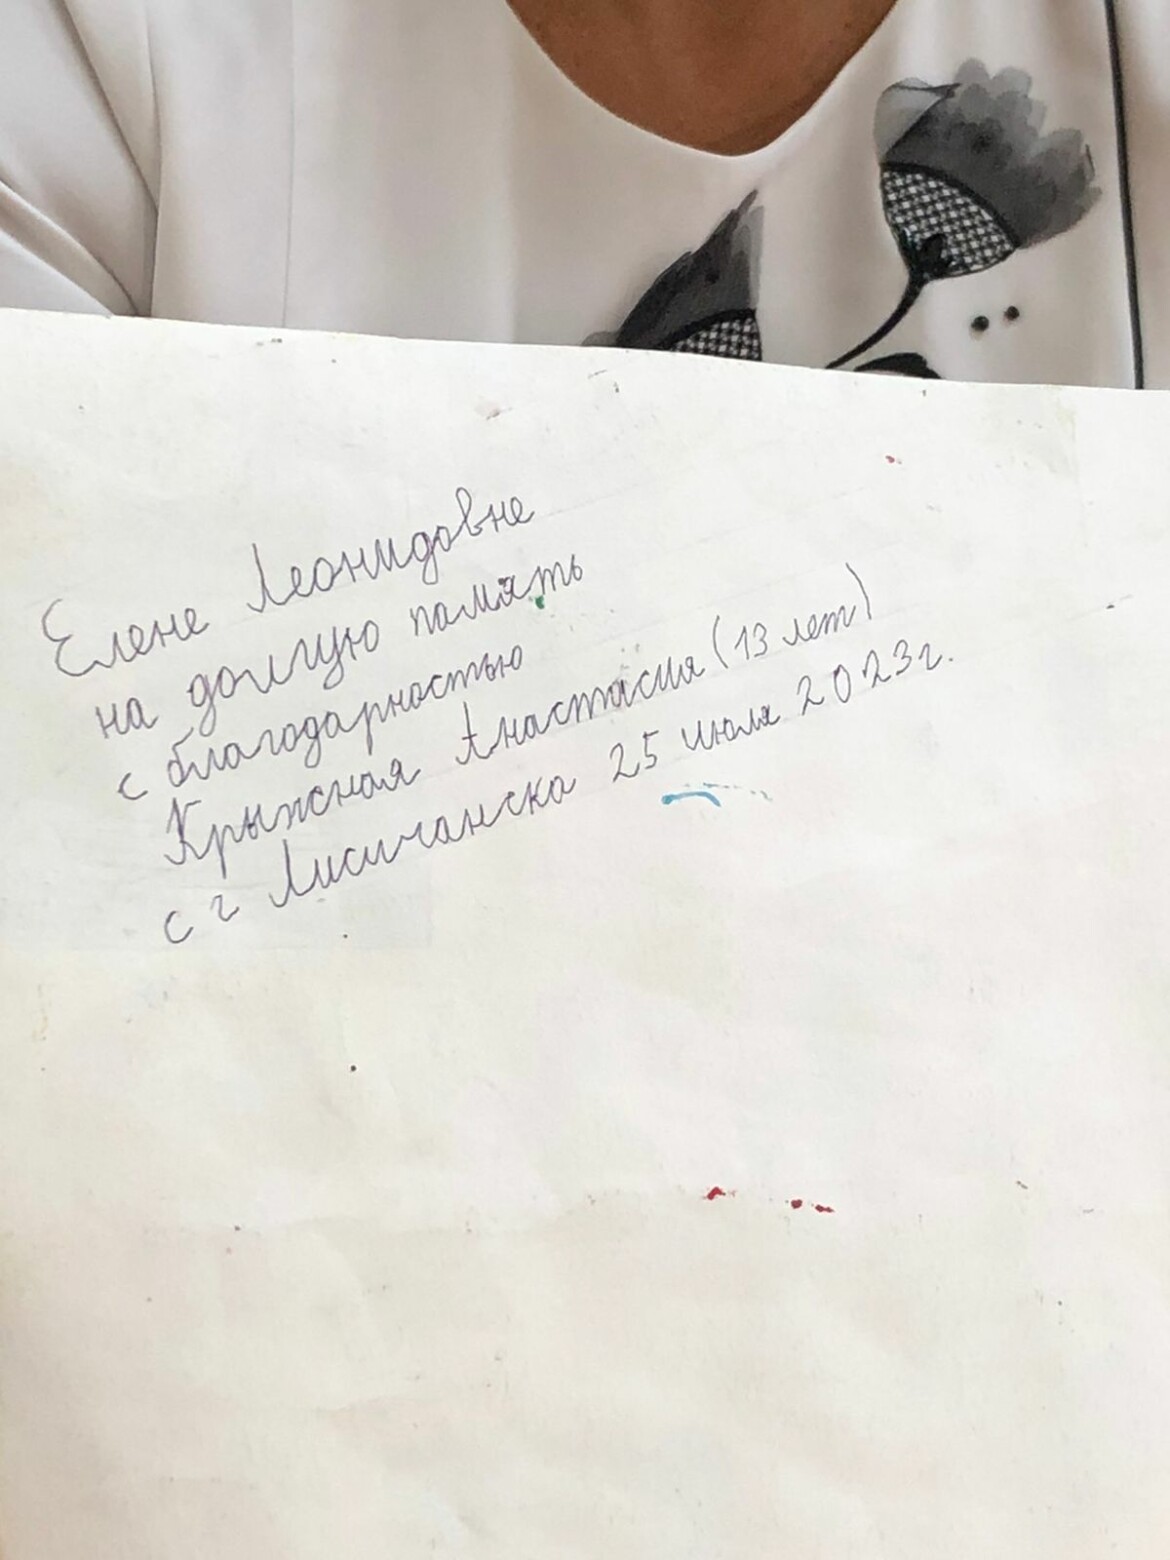 Елене Леонидовне
на долгую память
с благодарностью
Крыжная Анастасия (13 лет)
с г Лисичанска 25 июля 2023г.